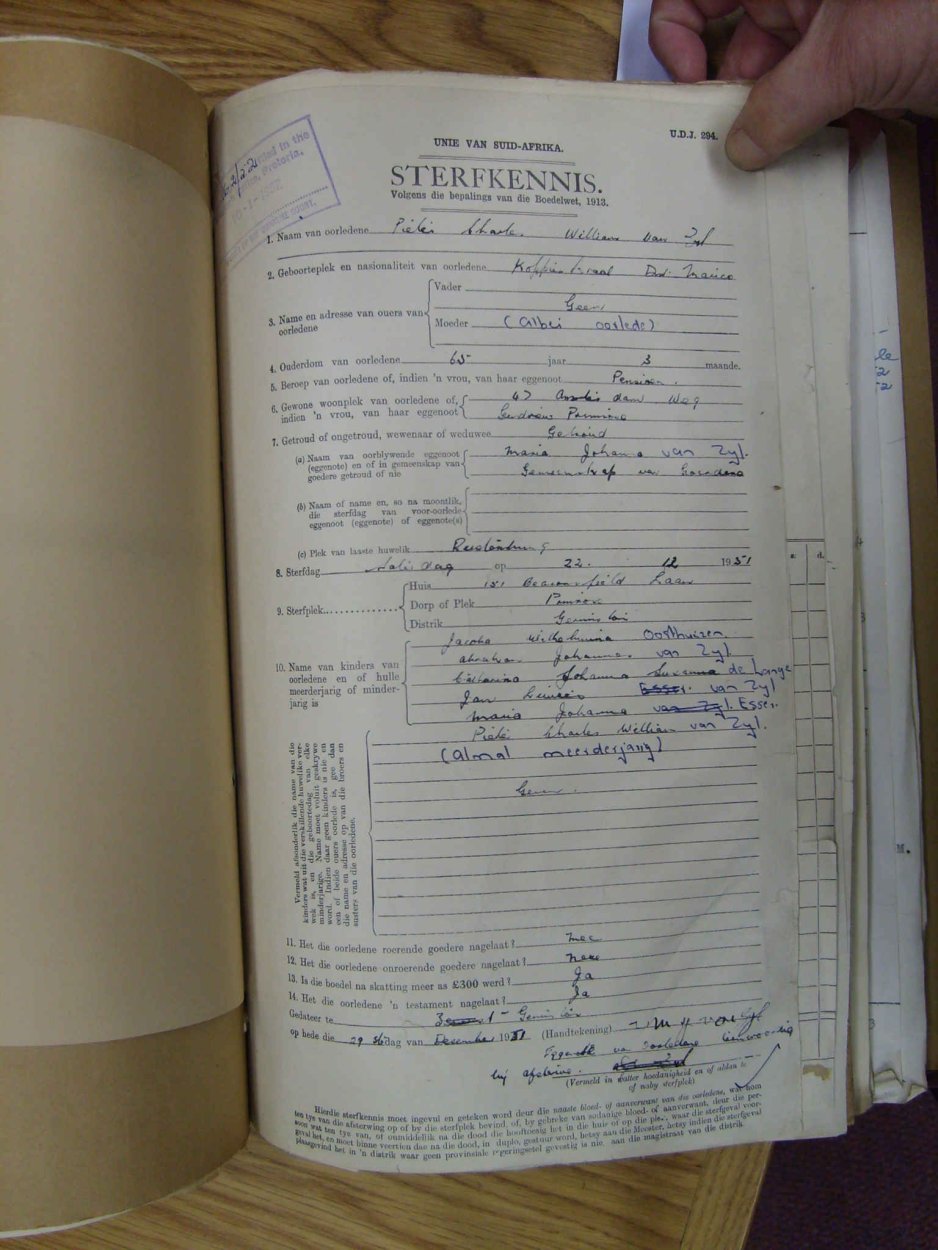 U.D.J. 294.
UNIE VAN SUID-AFRIKA.
STERFKENNIS.
Volgens die bepalings van die Boedelwet, 1913.
1. Naam van oorledene Pieter Charles William van Zyl
2. Geboorteplek en nasionaliteit van oorledene Koppieskraal Marico
3. Name en adresse van ouers van oorledene
Vader
Geen
Moeder (Albei oorlede)
4. Ouderdom van oorledene 65 jaar 3 maande.
5. Beroep van oorledene of, indien 'n vrou, van haar eggenoot
6. Gewone woonplek van oorledene of, indien 'n vrou, van haar eggenoot
47 dam Weg
7. Getroud of ongetroud, wewenaar of weduwee Getroud
(a) Naam van oorblywende eggenoot (eggenote) en of in gemeenskap van goedere getroud of nie
Maria Johanna van Zyl.
Gemeenskap van Goedere
(b) Naam of name en, so na moontlik, die sterfdag van voor-oorlede eggenoot (eggenote) of eggenote(s)
(c) Plek van laaste huwelik Rustenburg
8. Sterfdag op 22. 12 1951
9. Sterfplek
Huis 151 Beaconsfield Laan
Dorp of Plek
Distrik Germiston
10. Name van kinders van oorledene en of hulle meerderjarig of minderjarig is
Jacoba Wilhelmina Oosthuizen.
Abraham Johannes van Zyl.
Catharina Johanna Susanna de Lange
Jan van Zyl
Maria Johanna van Zyl. Esser.
Pieter Charles William van Zyl.
(Almal meerderjarig)
Vermeld afsonderlik die name van die kinders wat uit die verskillende huwelike verwek is, en die geboortedag van elke minderjarige. Name moet voluit geskrywe word. Indien daar geen kinders is nie en een of beide ouers oorlede is, gee dan die name en adresse op van die broers en susters van die oorledene.
Geen.
11. Het die oorledene roerende goedere nagelaat?
12. Het die oorledene onroerende goedere nagelaat?
13. Is die boedel na skatting meer as £300 werd? Ja
14. Het die oorledene 'n testament nagelaat? Ja
Gedateer te Germiston
op hede die 29 ste dag van Desember 1951 (Handtekening)
(Vermeld in watter hoedanigheid en of al dan nie by sterfplek)
Hierdie sterfkennis moet ingevul en geteken word deur die naaste bloed- of aanverwant van die oorledene, wat
ten tye van die afsterwing op of by die sterfplek bevind, of, by gebreke van sodanige bloed- of aanverwant, deur die per-
soon wat ten tye van, of onmiddellik na die dood die hooftoesig het in die huis of op die plek, waar die sterfgeval voor-
geval het, en moet binne veertien dae na die dood, in duplo, gestuur word, hetsy aan die Meester, hetsy indien die sterfgeval
plaasgevind het in 'n distrik waar geen provinsiale registrasie gevestig is nie, aan die magistraat van die distrik.